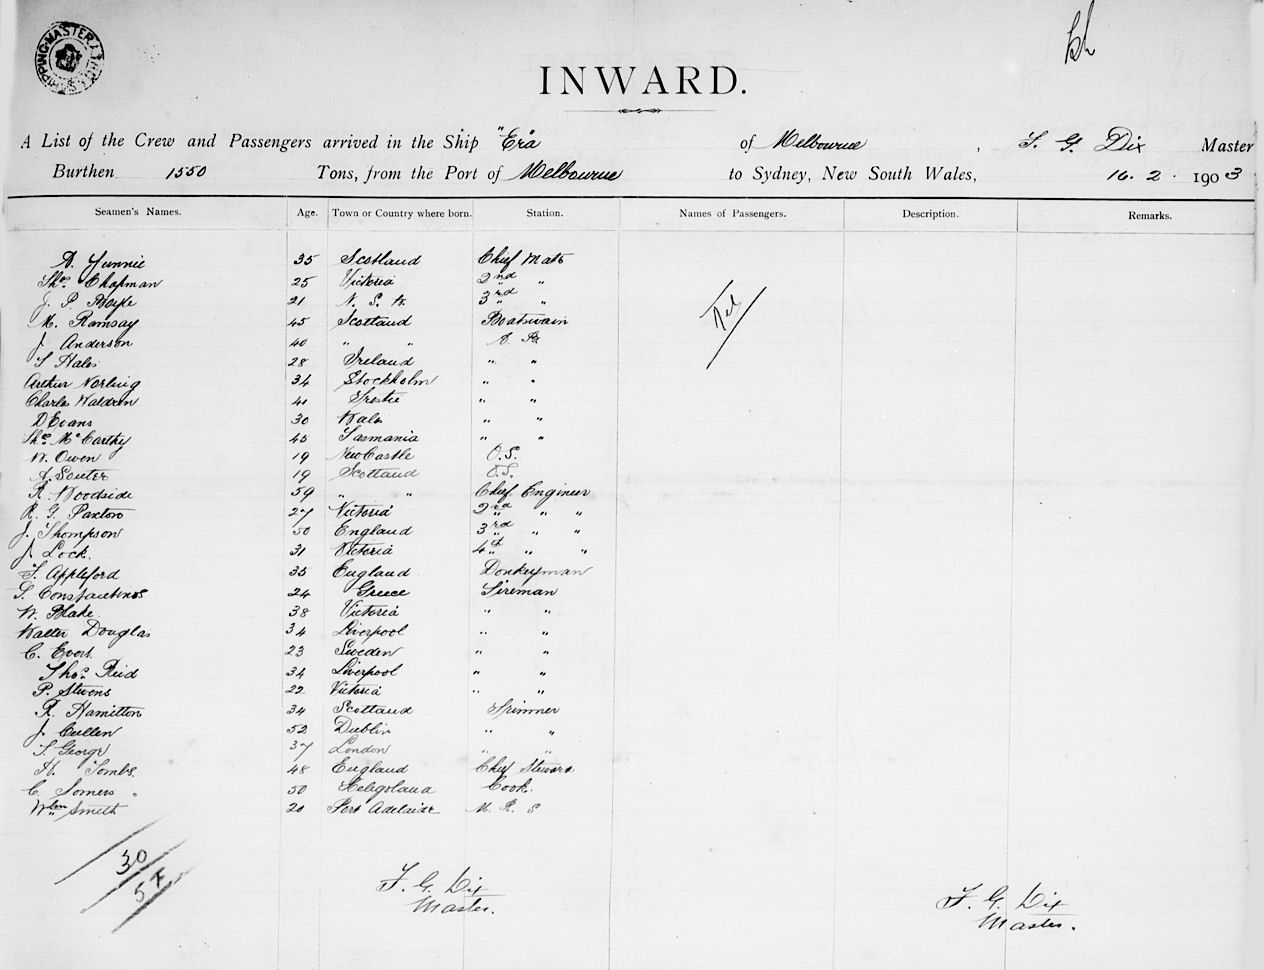 SHIPPING MASTER
INWARD.
A List of the Crew and Passengers arrived in the Ship "Era" of Melbourne, F. G. Dix Master
Burthen 1550 Tons, from the Port of Melbourne to Sydney, New South Wales, 16. 2. 1903
Seamen's Names. Age. Town or Country where born. Station. Names of Passengers. Description. Remarks.
35 Scotland Chief Mate
Thos. Chapman 25 Victoria 2nd "
J. P. 21 N. S. W. 3rd "
M. Ramsay 45 Scotland Boatswain
J. Anderson 40 " " A. B.
28 Ireland " "
Arthur Norling 34 Stockholm " "
Charles Waldren 41 " "
D Evans 30 Wales " "
Thos. McCarthy 45 Tasmania " "
W. Owen 19 NewCastle O.S.
A. Souter 19 Scotland O.S.
R. Woodside 59 " " Chief Engineer
R. G. Paxton 27 Victoria 2nd " "
J. Thompson 50 England 3rd " "
J. Lock. 31 Victoria 4th " "
T. Appleford 35 England Donkeyman
24 Greece Fireman
W. Blake 38 Victoria " "
Walter Douglas 34 Liverpool " "
C. Evert 23 Sweden " "
Thos. Reid 34 Liverpool " "
P. Stevens 22 Victoria " "
R. Hamilton 34 Scotland Trimmer
J. Cullen 52 Dublin " "
George 37 London " "
H. Tombs. 48 England Chief Steward
C. Somers 50 Heligoland Cook.
Wm. Smith 20 Port Adelaide M. R. S
Nil
30
F. G. Dix
Master.
F. G. Dix
Master.